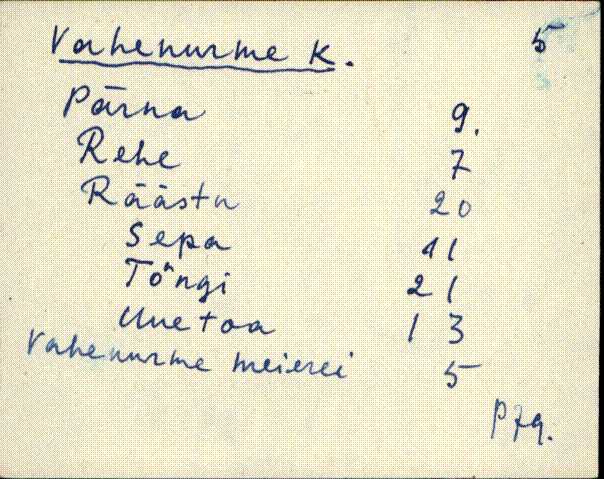 Vahenurme k. 5
Pärna 9.
Rehe 7
Räästu 20
Sepa 11
Tõngi 21
Uuetoa 13
Vahenurme meierei 5